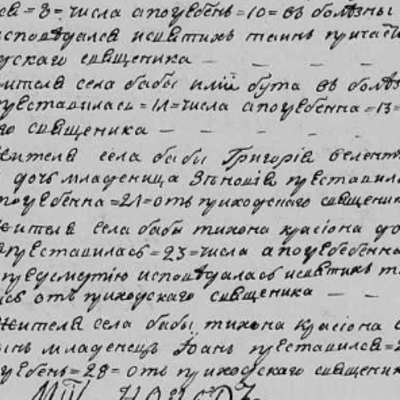 =8= числа а погребенъ =10= въ болѣзны
исповѣдался исвятихъ таинъ причаст
священика — — — —
жителя села бабы илїи бута въ болѣз
преставилась =11= числа а погребенна =13=
го священика — — — —
Жителя села бабы Григорїя
дочь младеница Зѣновїя преставила
погребенна =21= отъ приходского священик
Жителя села бабы тихона красїона до
преставилась =23= числа а погребенна
предсмертїю исповѣдалась исвятихъ т
сь отъ приходскаго священика — —
Жителя села бабы тихона красїона с
сынъ младенецъ Їоанъ преставился =2
гребенъ =28= отъ приходскаго священик